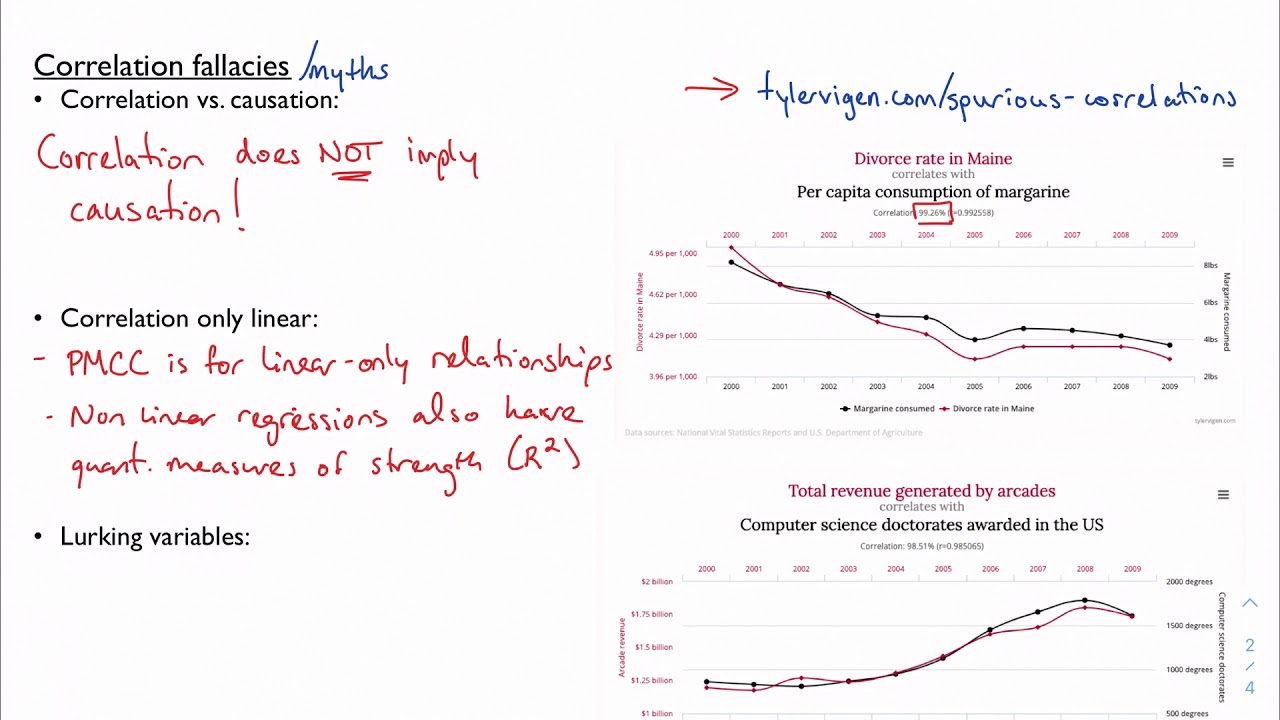 Correlation fallacies /myths
• Correlation vs. causation:
Correlation does NOT imply
causation!
• Correlation only linear:
- PMCC is for linear-only relationships
- Non linear regressions also have
quant. measures of strength (R²)
• Lurking variables:
→ tylervigen.com/spurious-correlations
Divorce rate in Maine
correlates with
Per capita consumption of margarine
Correlation: 99.26% (r=0.992558)
2000 2001 2002 2003 2004 2005 2006 2007 2008 2009
4.95 per 1,000
4.62 per 1,000
4.29 per 1,000
3.96 per 1,000
Divorce rate in Maine
8lbs
6lbs
4lbs
2lbs
Margarine consumed
2000 2001 2002 2003 2004 2005 2006 2007 2008 2009
Margarine consumed Divorce rate in Maine
tylervigen.com
Data sources: National Vital Statistics Reports and U.S. Department of Agriculture
Total revenue generated by arcades
correlates with
Computer science doctorates awarded in the US
Correlation: 98.51% (r=0.985065)
2000 2001 2002 2003 2004 2005 2006 2007 2008 2009
$2 billion
$1.75 billion
$1.5 billion
$1.25 billion
$1 billion
Arcade revenue
2000 degrees
1500 degrees
1000 degrees
500 degrees
Computer science doctorates
2
/
4